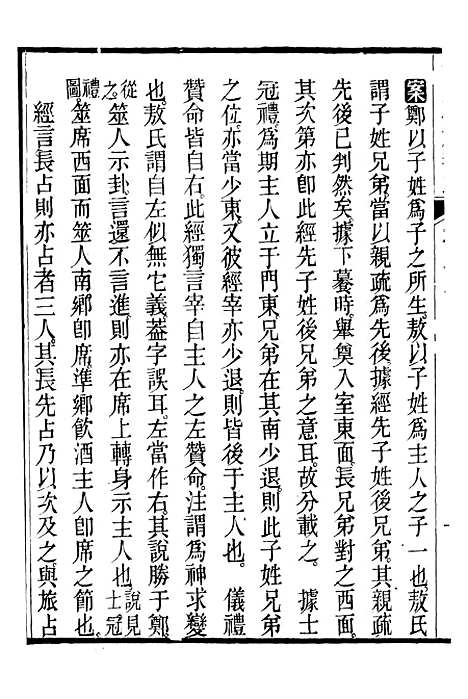 案鄭以子姓爲子之所生敖以子姓爲主人之子一也敖氏
謂子姓兄弟當以親疏爲先後據經先子姓後兄弟其親疏
先後已判然矣據下暮時舉奠入室東面長兄弟對之西面
其次第亦卽此經先子姓後兄弟之意耳故分載之。據士
冠禮爲期主人立于門東兄弟在其南少退此子姓兄弟
之位亦當少東又彼經宰亦少退則皆後于主人也。儀禮
贊命皆自右此經獨言宰自主人之左贊命注謂爲神求變
也敖氏謂自左似無它義葢字誤耳左當作右其說勝于鄭
從之筮人示卦言還不言進則亦在席上轉身示主人也說見士冠
禮圖筮席西面而筮人南鄉卽席準鄉飮酒主人卽席之節也
經言長占則亦占者三人其長先占乃以次及之與旅占